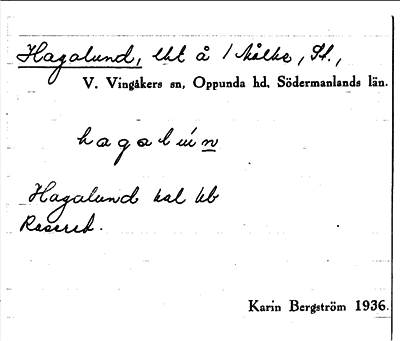 Hagalund, lht å 1 Målke, St.,
V. Vingåkers sn, Oppunda hd, Södermanlands län.
hagalún
Hagalund kal kb
Raserad.
Karin Bergström 1936.